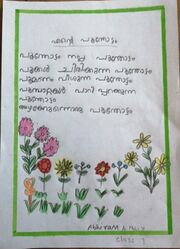 എന്റെ പൂന്തോട്ടം
പൂന്തോട്ടം നല്ല പൂന്തോട്ടം
പൂക്കൾ ചിരിക്കുന്ന പൂന്തോട്ടം
പൂമണം വീശുന്ന പൂന്തോട്ടം
പൂമ്പാറ്റകൾ പാറി പ്പറക്കുന്ന
പൂന്തോട്ടം
പൂന്തോട്ടം
class